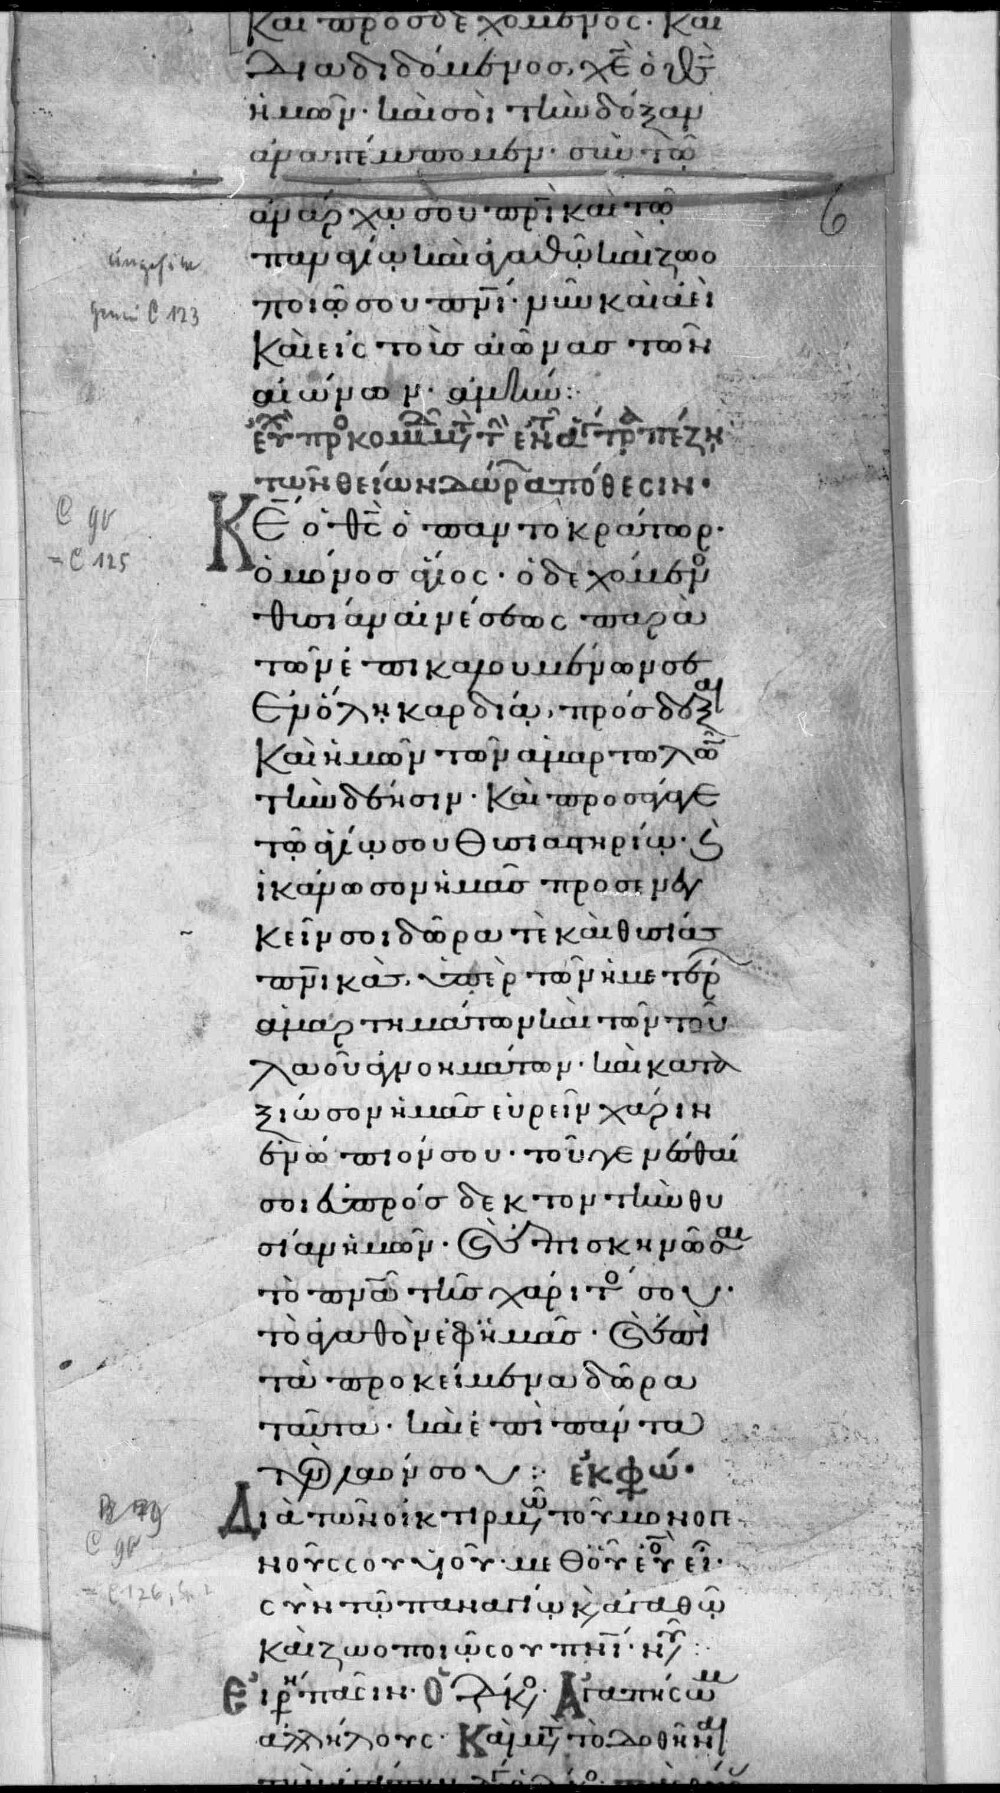 Καὶ προσδεχόμενος· καὶ
διαδιδόμενος, χ̅ε̅ ὁ θ̅ς̅
ἡμῶν· καὶ σοὶ τὴν δόξαν
ἀναπέμπομεν· σὺν τῶ
ἀνάρχω σου π̅ρ̅ι̅ καὶ τῶ
παναγίω καὶ ἀγαθῶ καὶ ζωο
ποιῶ σου π̅ν̅ι̅· νῦν καὶ ἀεὶ
καὶ εἰς τοὺς αἰῶνας τῶν
αἰώνων· ἀμήν:
6
C 123
τῶν θείων δώρ ἀπόθεσιν·
C 90
= C 125
Κ̅ε̅ ὁ θ̅ς̅ ὁ παντοκράτωρ·
ὁ μόνος ἅγιος· ὁ δεχόμεν
θυσίαν αἰνέσεως παρὰ
τῶν ἐπικαλουμένων σε
ἐν ὅλη καρδία, πρόσδεξαι
καὶ ἡμῶν τῶν ἁμαρτωλῶν
τὴν δέησιν· καὶ προσάγαγε
τῶ ἁγίω σου θυσιαστηρίω· καὶ
ἱκάνωσον ἡμᾶς προσενεγ
κεῖν σοι δῶρα τὲ καὶ θυσίας
π̅ν̅ικὰς, ὑπὲρ τῶν ἡμετέρ
ἁμαρτημάτων καὶ τῶν τοῦ
λαοῦ ἀγνοημάτων· καὶ κατα
ξίωσον ἡμᾶς εὑρεῖν χάριν
ἐνώπιόν σου· τοῦ γενέσθαι
σοι εὐπρόσδεκτον τὴν θυ
σίαν ἡμῶν· καὶ ἐπισκηνῶσαι
τὸ π̅ν̅α̅ τῆς χάριτο σου·
τὸ ἀγαθὸν ἐφ ἡμᾶς· καὶ ἐπὶ
τὰ προκείμενα δῶρα
ταῦτα· καὶ ἐπὶ πάντα
τὸν λαόν σου: ἐκφώ·
Διὰ τῶν οἰκτιρμῶ τοῦ μονογε
C 90
νοῦς σου υἱοῦ· μεθ οὗ εὐ εἶ·
= C 126
σὺν τῶ παναγίω κ ἀγαθῶ
καὶ ζωοποιῶ σου π̅ν̅ι̅· νυ:
Εἰρήν πᾶσιν· Ὁ διάκο Ἀγαπήσωμ
ἀλλήλους· Καὶ μετ τὸ δοθῆναι